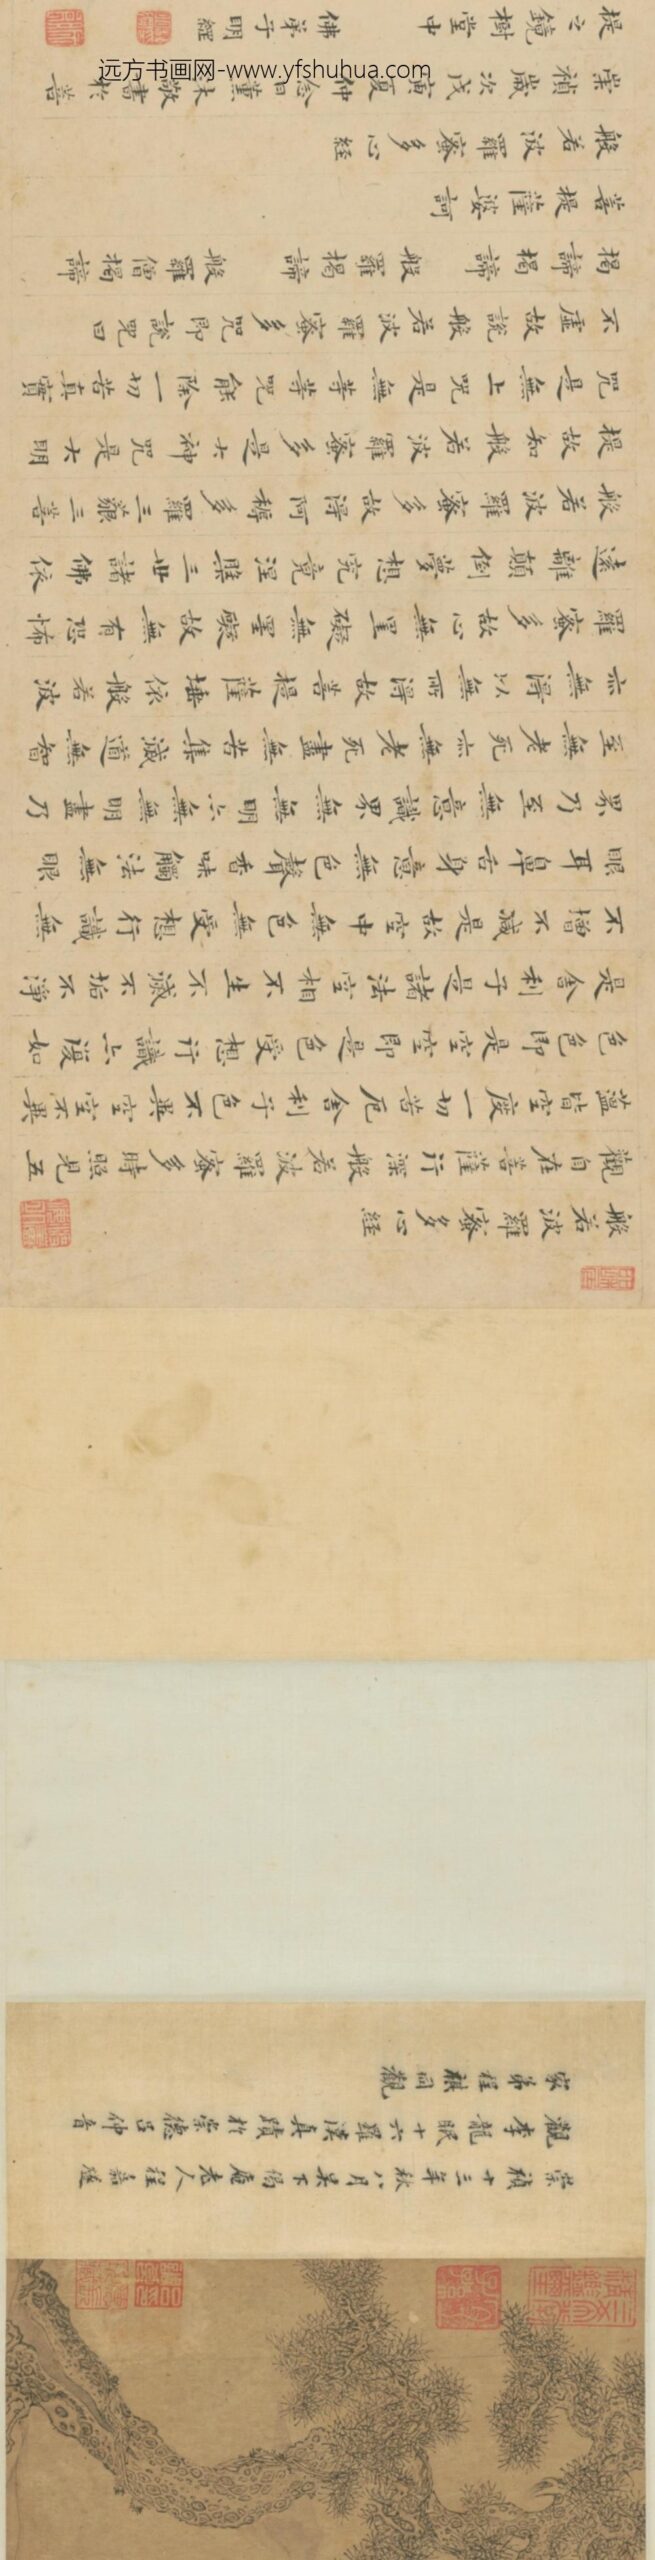 崇禎十三年秋八月吴下偈庵老人程嘉燧
觀李龍眠十六羅漢真蹟於崇德呂仲音
家弟程祺同觀
般若波羅蜜多心経
觀自在菩薩行深般若波羅蜜多時照見五
蘊皆空度一切苦厄舍利子色不異空空不異
色色即是空空即是色受想行識亦復如
是舍利子是諸法空相不生不滅不垢不淨
不增不減是故空中無色無受想行識無
眼耳鼻舌身意無色聲香味觸法無眼
界乃至無意識界無無明亦無無明盡乃
至無老死亦無老死盡無苦集滅道無智
亦無得以無所得故菩提薩埵依般若波
羅蜜多故心無罣礙無罣礙故無有恐怖
遠離顛倒夢想究竟涅槃三世諸佛依
般若波羅蜜多故得阿耨多羅三藐三菩
提故知般若波羅蜜多是大神咒是大明
咒是無上咒是無等等咒能除一切苦真實
不虛故說般若波羅蜜多咒即說咒曰
揭諦揭諦 般羅揭諦 般羅僧揭諦
菩提薩婆訶
般若波羅蜜多心経
崇禎歲次戊寅夏仲念日薰沐敬書於菩
提之鏡樹堂中
佛弟子明經
远方书画网-www.yfshuhua.com